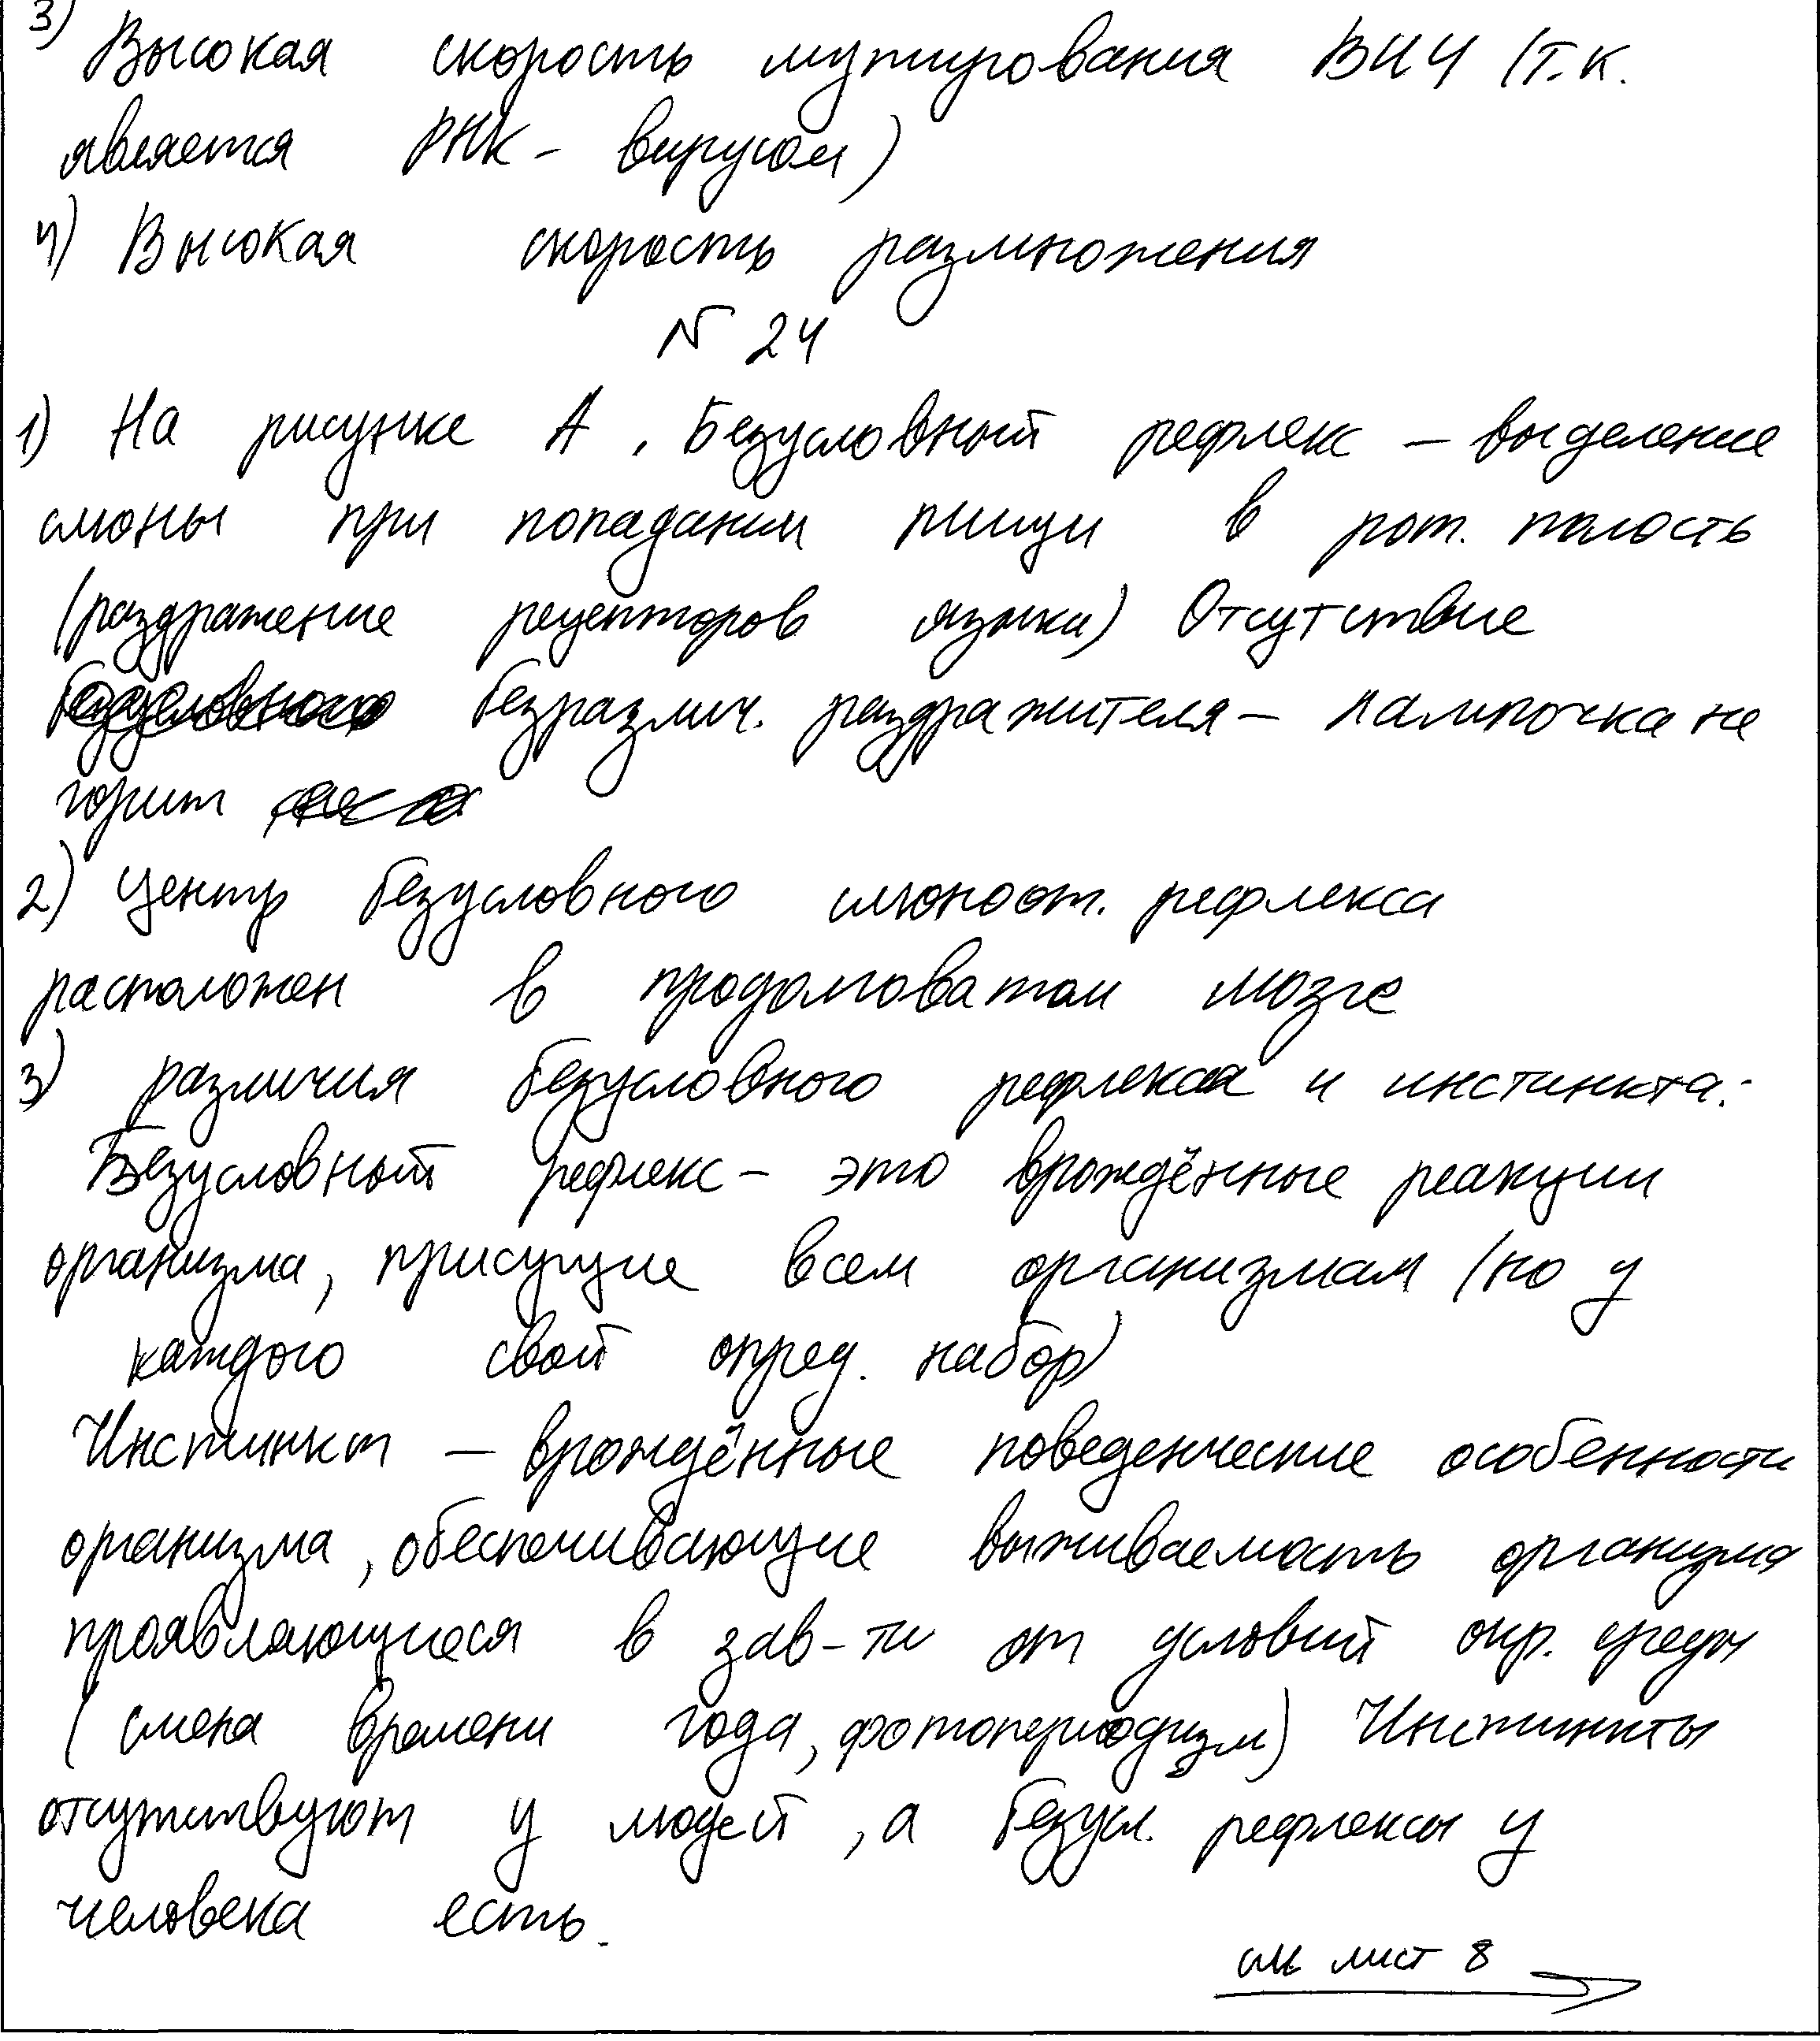 3)
Высокая скорость мутирования ВИЧ (т.к.
является РНК - вирусом)
4) Высокая скорость размножения
N 24
1) На рисунке А. Безусловный рефлекс – выделение
слюны при попадании пищи в рот. полость
(раздражение рецепторов языка) Отсутствие
безразлич. раздражителя – лампочка не
горит
2) Центр безусловного слюноот. рефлекса
расположен в продолговатом мозге
3) различия безусловного рефлекса и инстинкта:
Безусловный рефлекс – это врождённые реакции
организма, присущие всем организмам (но у
каждого свой опред. набор)
Инстинкт – врождённые поведенческие особенности
организма, обеспечивающие выживаемость организма
проявляющиеся в зав-ти от условий окр. среды
(смена времени года, фотопериодизм) Инстинкты
отсутствуют у людей, а безусл. рефлексы у
человека есть.
см лист 8